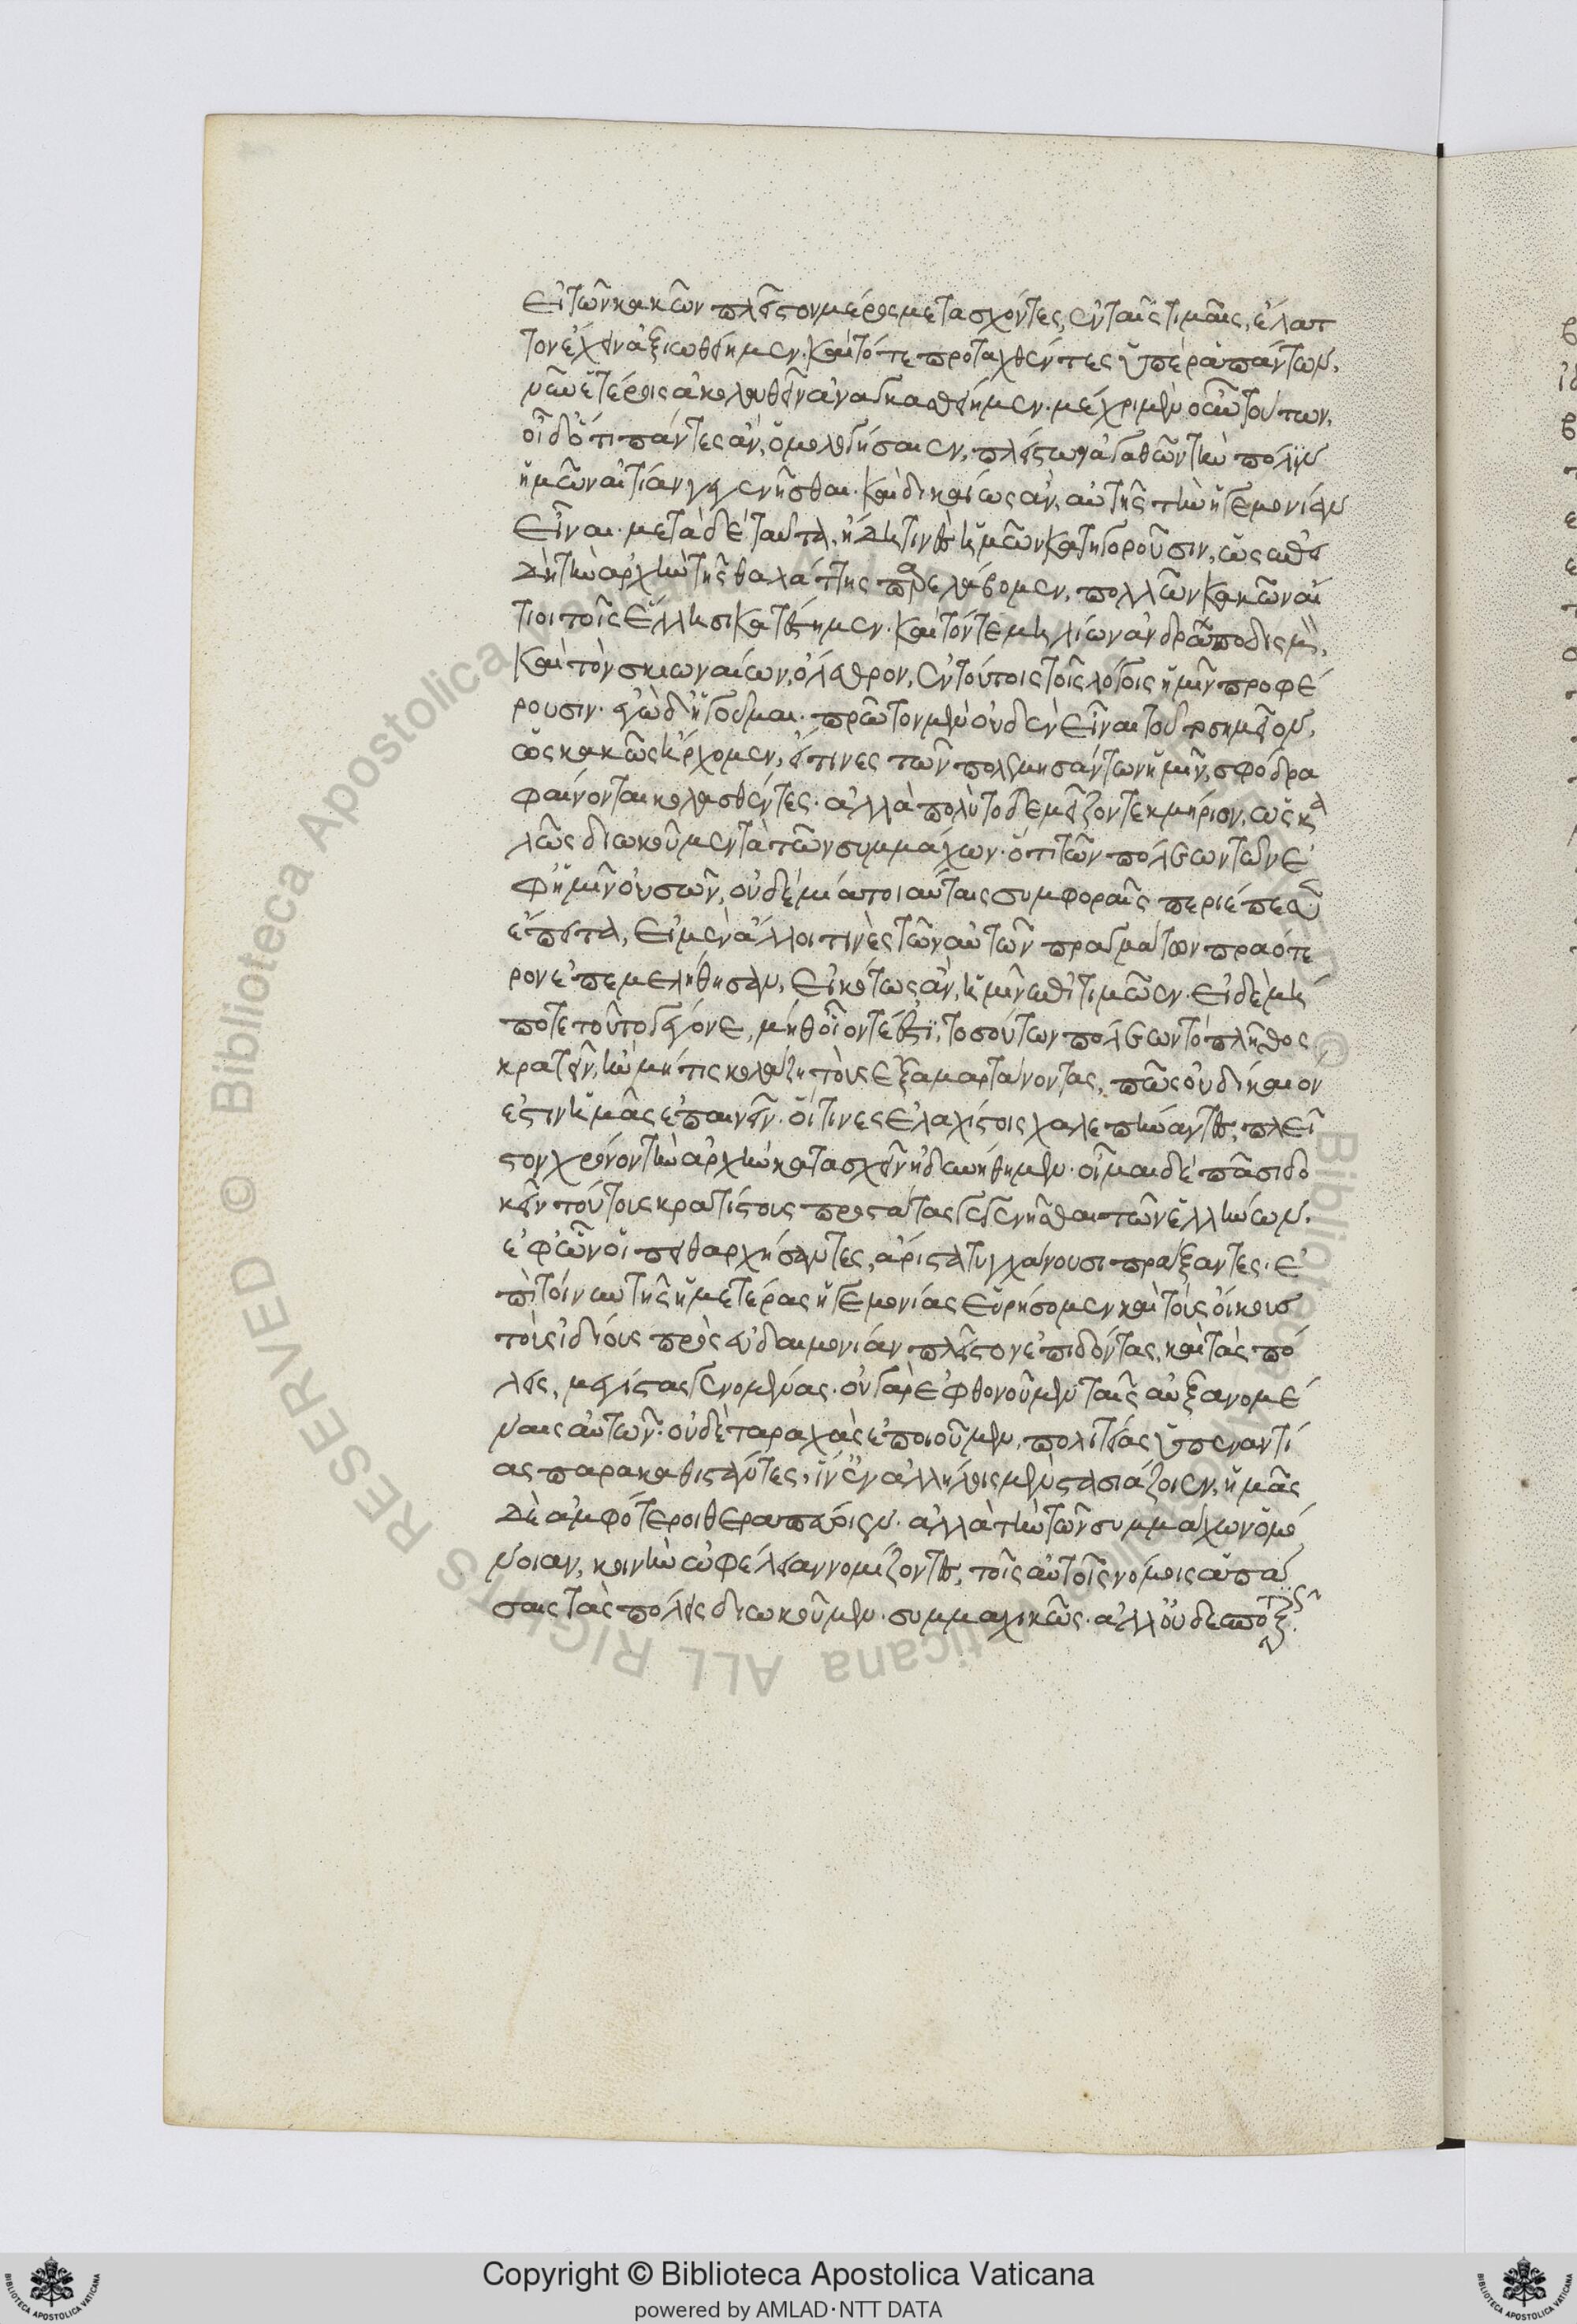 εἰ τῶν κακῶν πλεῖστον μέρος μετασχόντες, ἐν ταῖς τιμαῖς, ἔλατ
τον ἔχειν ἀξιωθείημεν. καὶ τότε προταχθέντες ὑπὲρ ἁπάντων,
νῦν ἑτέροις ἀκολουθεῖν ἀναγκασθείημεν. μέχρι μὲν οὖν τούτων,
οἶδ ὅτι πάντες ἂν, ὁμολογήσαιεν, πλείστων ἀγαθῶν τὴν πόλιν
ἡμῶν αἰτίαν γεγενῆσθαι. καὶ δικαίως ἂν, αὐτῆς τὴν ἡγεμονίαν
εἶναι. μετὰ δὲ ταῦτα, ἤδη τινὲς ἡμῶν κατηγοροῦσιν, ὡς ἐπει
δὴ τὴν ἀρχὴν τῆς θαλάττης παρελάβομεν, πολλῶν κακῶν αἴ
τιοι τοῖς Ἕλλησι κατέστημεν. καὶ τόν τε μηλίων ἀνδραποδισμὸν,
καὶ τὸν σκιωναίων, ὄλεθρον, ἐν τούτοις τοῖς λόγοις ἡμῖν προφέ
ρουσιν. ἐγὼ δ' ἡγοῦμαι. πρῶτον μὲν οὐδὲν εἶναι τοῦτο σημεῖον,
ὡς κακῶς ἤρχομεν, εἴ τινες τῶν πολεμησάντων ἡμῖν, σφόδρα
φαίνονται κολασθέντες. ἀλλὰ πολὺ τόδε μεῖζον τεκμήριον, ὡς κα
λῶς διῳκοῦμεν τὰ τῶν συμμάχων. ὅτι τῶν πόλεων τῶν ἐ
φ' ἡμῖν οὐσῶν, οὐδεμία τοιαύταις συμφοραῖς περιέπεσεν
ἔπειτα, εἰ μὲν ἄλλοι τινὲς τῶν αὐτῶν πραγμάτων πραότε
ρον ἐπεμελήθησαν, εἰκότως ἂν, ἡμῖν ἐπιτιμῷεν. εἰ δὲ μή
ποτε τοῦτο γέγονε, μήθ' οἷόντέ ἐστι, τοσούτων πόλεων τὸ πλῆθος
κρατεῖν, ἢν μή τις κολάζῃ τοὺς ἐξαμαρτάνοντας, πῶς οὐ δίκαιον
ἐστιν ἡμᾶς ἐπαινεῖν. οἵτινες ἐλαχίστοις χαλεπήναντες, πλεῖ
στον χρόνον τὴν ἀρχὴν κατασχεῖν ἠδυνήθημεν. οἶμαι δὲ πᾶσι δο
κεῖν τούτους κρατίστους προστάτας γεγενῆσθαι τῶν ἑλλήνων,
ἐφ' ὧν οἱ πειθαρχήσαντες, ἄριστα τυγχάνουσι πράξαντες. ἐ
πὶ τοίνυν τῆς ἡμετέρας ἡγεμονίας εὑρήσομεν καὶ τοὺς οἴκους
τοὺς ἰδίους πρὸς εὐδαιμονίαν πλεῖστον ἐπιδόντας, καὶ τὰς πό
λεις, μεγίστας γενομένας. οὐ γὰρ ἐφθονοῦμεν ταῖς αὐξανομέ
ναις αὐτῶν. οὐδὲ ταραχὰς ἐποιοῦμεν, πολιτείας ὑπεναντί
ας παρακαθιστάντες, ἵν' ἐν ἀλλήλοις μὲν στασιάζοιεν, ἡμᾶς
δὲ ἀμφότεροι θεραπεύοιεν. ἀλλὰ τὴν τῶν συμμάχων ὁμό
νοιαν, κοινὴν ὠφέλειαν νομίζοντες, τοῖς αὐτοῖς νόμοις ἁπά
σαις τὰς πόλεις διῳκοῦμεν. συμμαχικῶς. ἀλλ' οὐ δεσπο